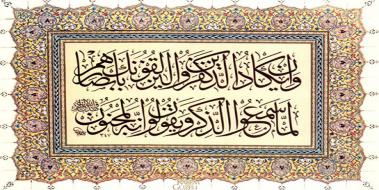 وان يكاد الذين كفروا ليزلقونك بابصارهم
لما سمعوا الذكر ويقولون انه لمجنون